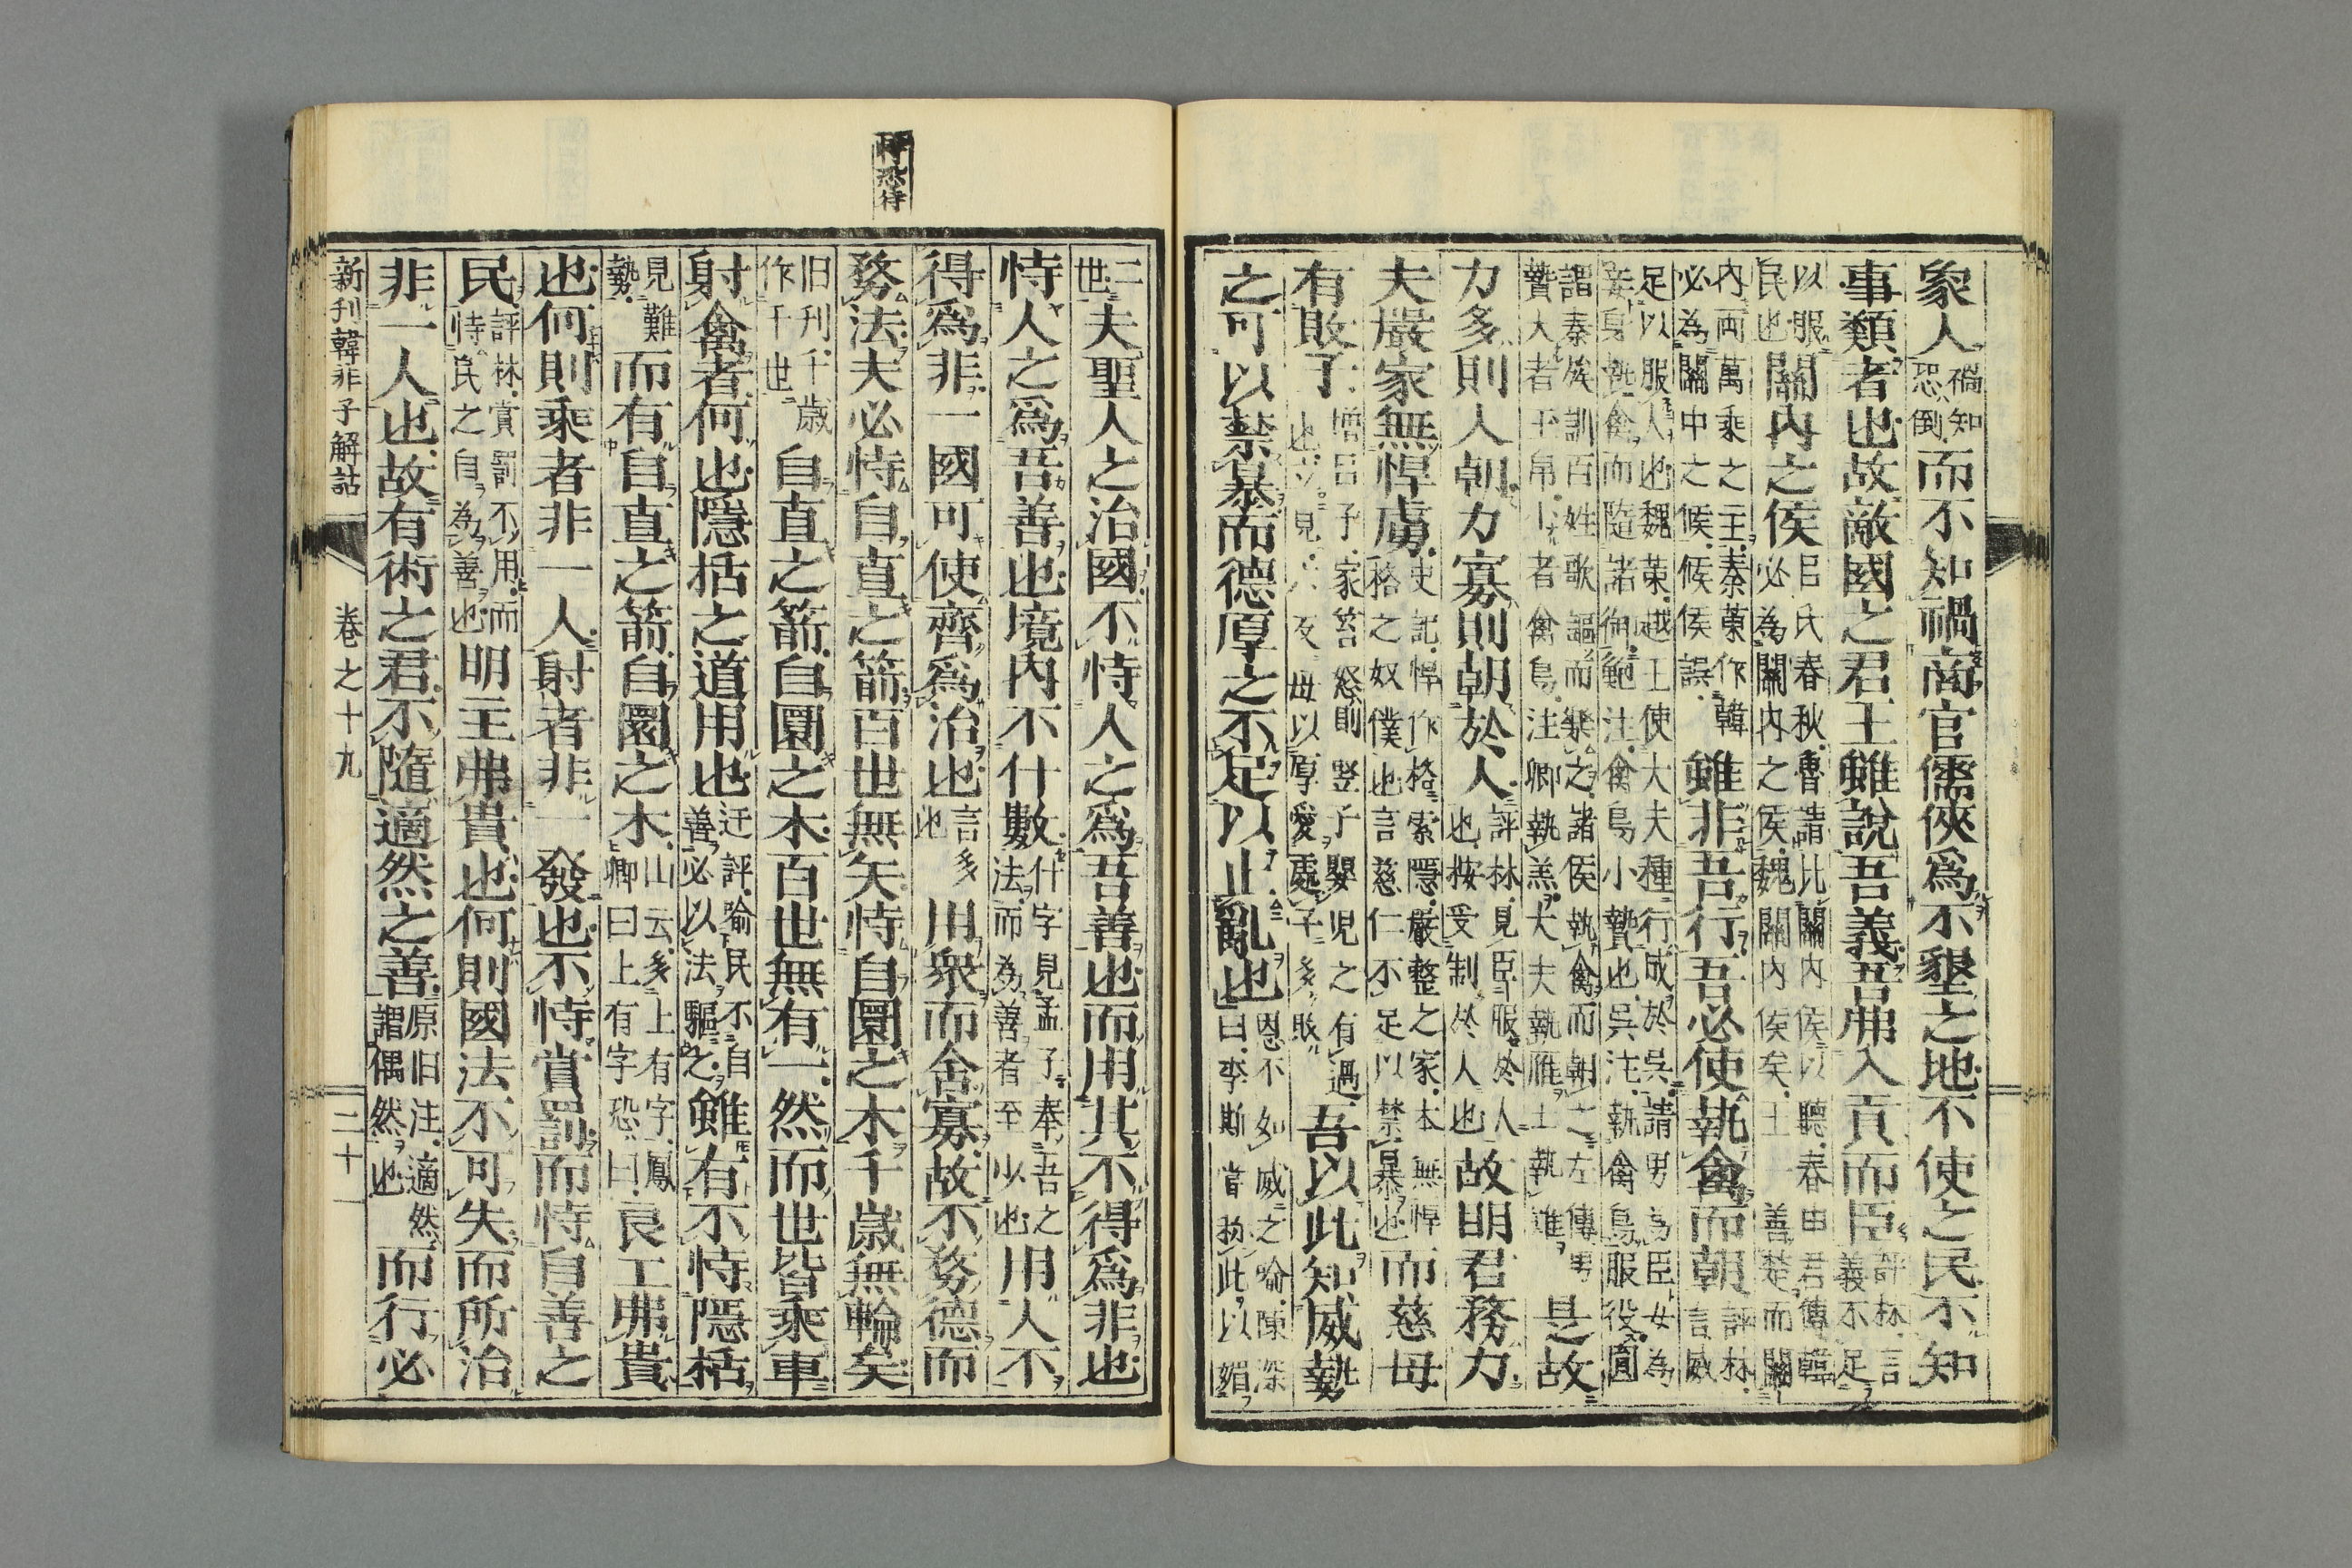 象人禍知恐倒而不知禍商官儒俠爲不墾之地不使之民不知
事類者也故敵國之君王雖說吾義吾弗入貢而臣評林言義不足
以服民也關內之侯呂氏春秋魯請比關內侯以聽春申君傳韓必為關內之侯魏關內侯矣王一善楚而關
內兩萬乘之王秦策作韓必為關中之候候侯誤雖非吾行吾必使執禽而朝評林言威
足以服人也魏策越王使大夫種行成於吳請男為臣女為妾身執禽而隨諸御鮑注禽鳥小贄也吳注執禽鳥服役圓
謂秦族訓百姓歌謳而樂之諸侯執禽而朝之左傳男贄大者玉帛小者禽鳥注卿執羔大夫執雁士執雉是故
力多則人朝力寡則朝於人評林見臣服於人也按受制於人也故明君務力
夫嚴家無悍虜史記悍作格索隱嚴整之家本無悍格之奴僕也言慈仁不足以禁暴也而慈母
有敗子增呂子家笞怒則豎子嬰兒之有過也立見六反母以厚愛處子多敗吾以此知威勢
之可以禁暴而德厚之不足以止亂也恩不如威之喻陳深曰李斯嘗执此以媚
二世夫聖人之治國不恃人之爲吾善也而用其不得爲非也
恃人之爲吾善也境內不什數什字見孟子奉吾之法而為善者至少也用人不
得爲非一國可使齊爲治也言多也用衆而舍寡故不務德而
務法夫必恃自直之箭百世無矢恃自圜之木千歲無輪矣
旧刊千歲作千世自直之箭自圜之木百世無有一然而世皆乘車
射禽者何也隱栝之道用也迂評喻民不自善必以法驅之雖有不恃隱栝
見難勢而有自直之箭自圜之木山云多上有字鳳卿曰上有字恐曰良工弗貴
也何則乘者非一人射者非一發也不恃賞罰而恃自善之
民評林賞罰不用而恃民之自為善也明主弗貴也何則國法不可失而所治
非一人也故有術之君不隨適然之善原旧注適然謂偶然也而行必
新刊韓非子解詁 卷之十九 二十一
恃恐待